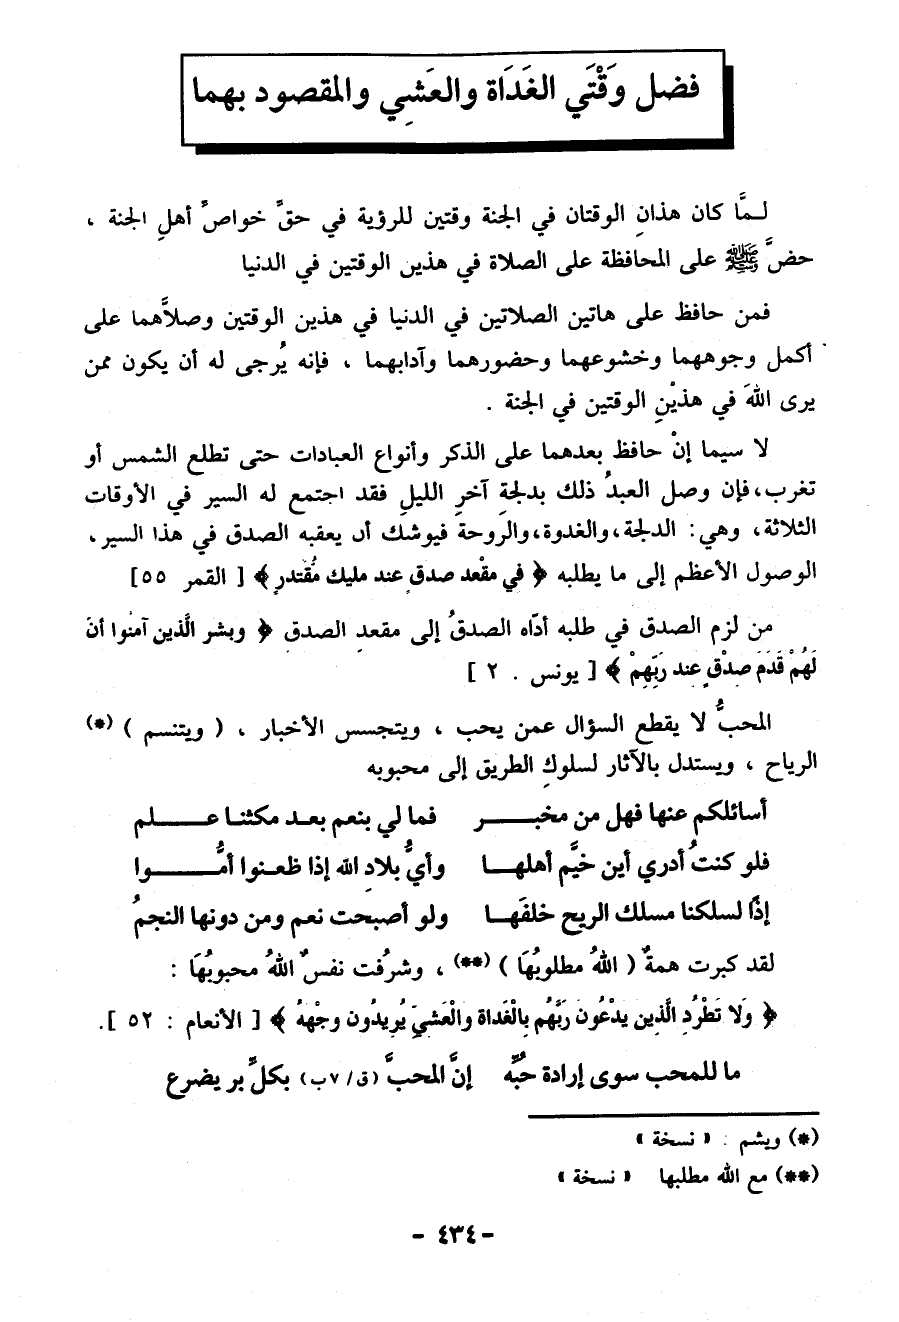 فضل وَقْتَي الغَدَاة والعَشِي والمقصود بهما
لـمَّا كان هذانِ الوقتان في الجنة وقتين للرؤية في حقِّ خواصِّ أهلِ الجنة ،
حضَّ ﷺ على المحافظة على الصلاة في هذين الوقتين في الدنيا
فمن حافظ على هاتين الصلاتين في الدنيا في هذين الوقتين وصلاَّهما على
أكمل وجوههما وخشوعهما وحضورهما وآدابهما ، فإنه يُرجى له أن يكون ممن
يرى اللهَ في هذيْنِ الوقتين في الجنة .
لا سيما إنْ حافظ بعدهما على الذكر وأنواع العبادات حتى تطلع الشمس أو
تغرب،فإن وصل العبدُ ذلك بدلجةِ آخرِ الليلِ فقد اجتمع له السير في الأوقات
الثلاثة، وهي: الدلجة،والغدوة،والروحة فيوشك أن يعقبه الصدق في هذا السير،
الوصول الأعظم إلى ما يطلبه ﴿ في مقْعد صدقٍ عند مليك مُقْتدرٍ ﴾ [ القمر ٥٥]
من لزم الصدق في طلبه أدّاه الصدقُ إلى مقعدِ الصدق ﴿ وبشر الَّذين آمنُوا أنَ
لَهُمْ قَدَمَ صدْقٍ عند رَبِّهِمْ ﴾ [ يونس . ٢ ]
المحبُّ لا يقطع السؤال عمن يحب ، ويتجسس الأخبار ، ( ويتنسم ) (*)
الرياح ، ويستدل بالآثار لسلوكِ الطريق إلى محبوبه
أسائلكم عنها فهل من مخبـــــر فما لي بنعم بعـد مكثنـا عـــــلم
فلو كنتُ أدري أين خيَّم أهلهــا وأيُّ بلادِ الله إذا ظعـنوا أمُّـــــوا
إذًا لسلكنا مسلك الريح خلفَهـا ولو أصبحت نعم ومن دونها النجمُ
لقد كبرت همةٌ ( اللهُ مطلوبُهَا ) (**) ، وشرُفت نفسٌ اللهُ محبوبُهَا :
﴿ وَلا تَطْرُدِ الَّذين يدْعُون رَبَّهُم بِالْغَداة والْعَشيِّ يُرِيدُون وجْههُ ﴾ [ الأنعام : ٥٢ ].
ما للمحب سوى إرادة حُبِّه إنَّ المحبَّ (ق/ ٧ب) بكلِّ بر يضرع
(*) ويشم : « نسخة »
(**) مع الله مطلبها « نسخة »
- ٤٣٤ -